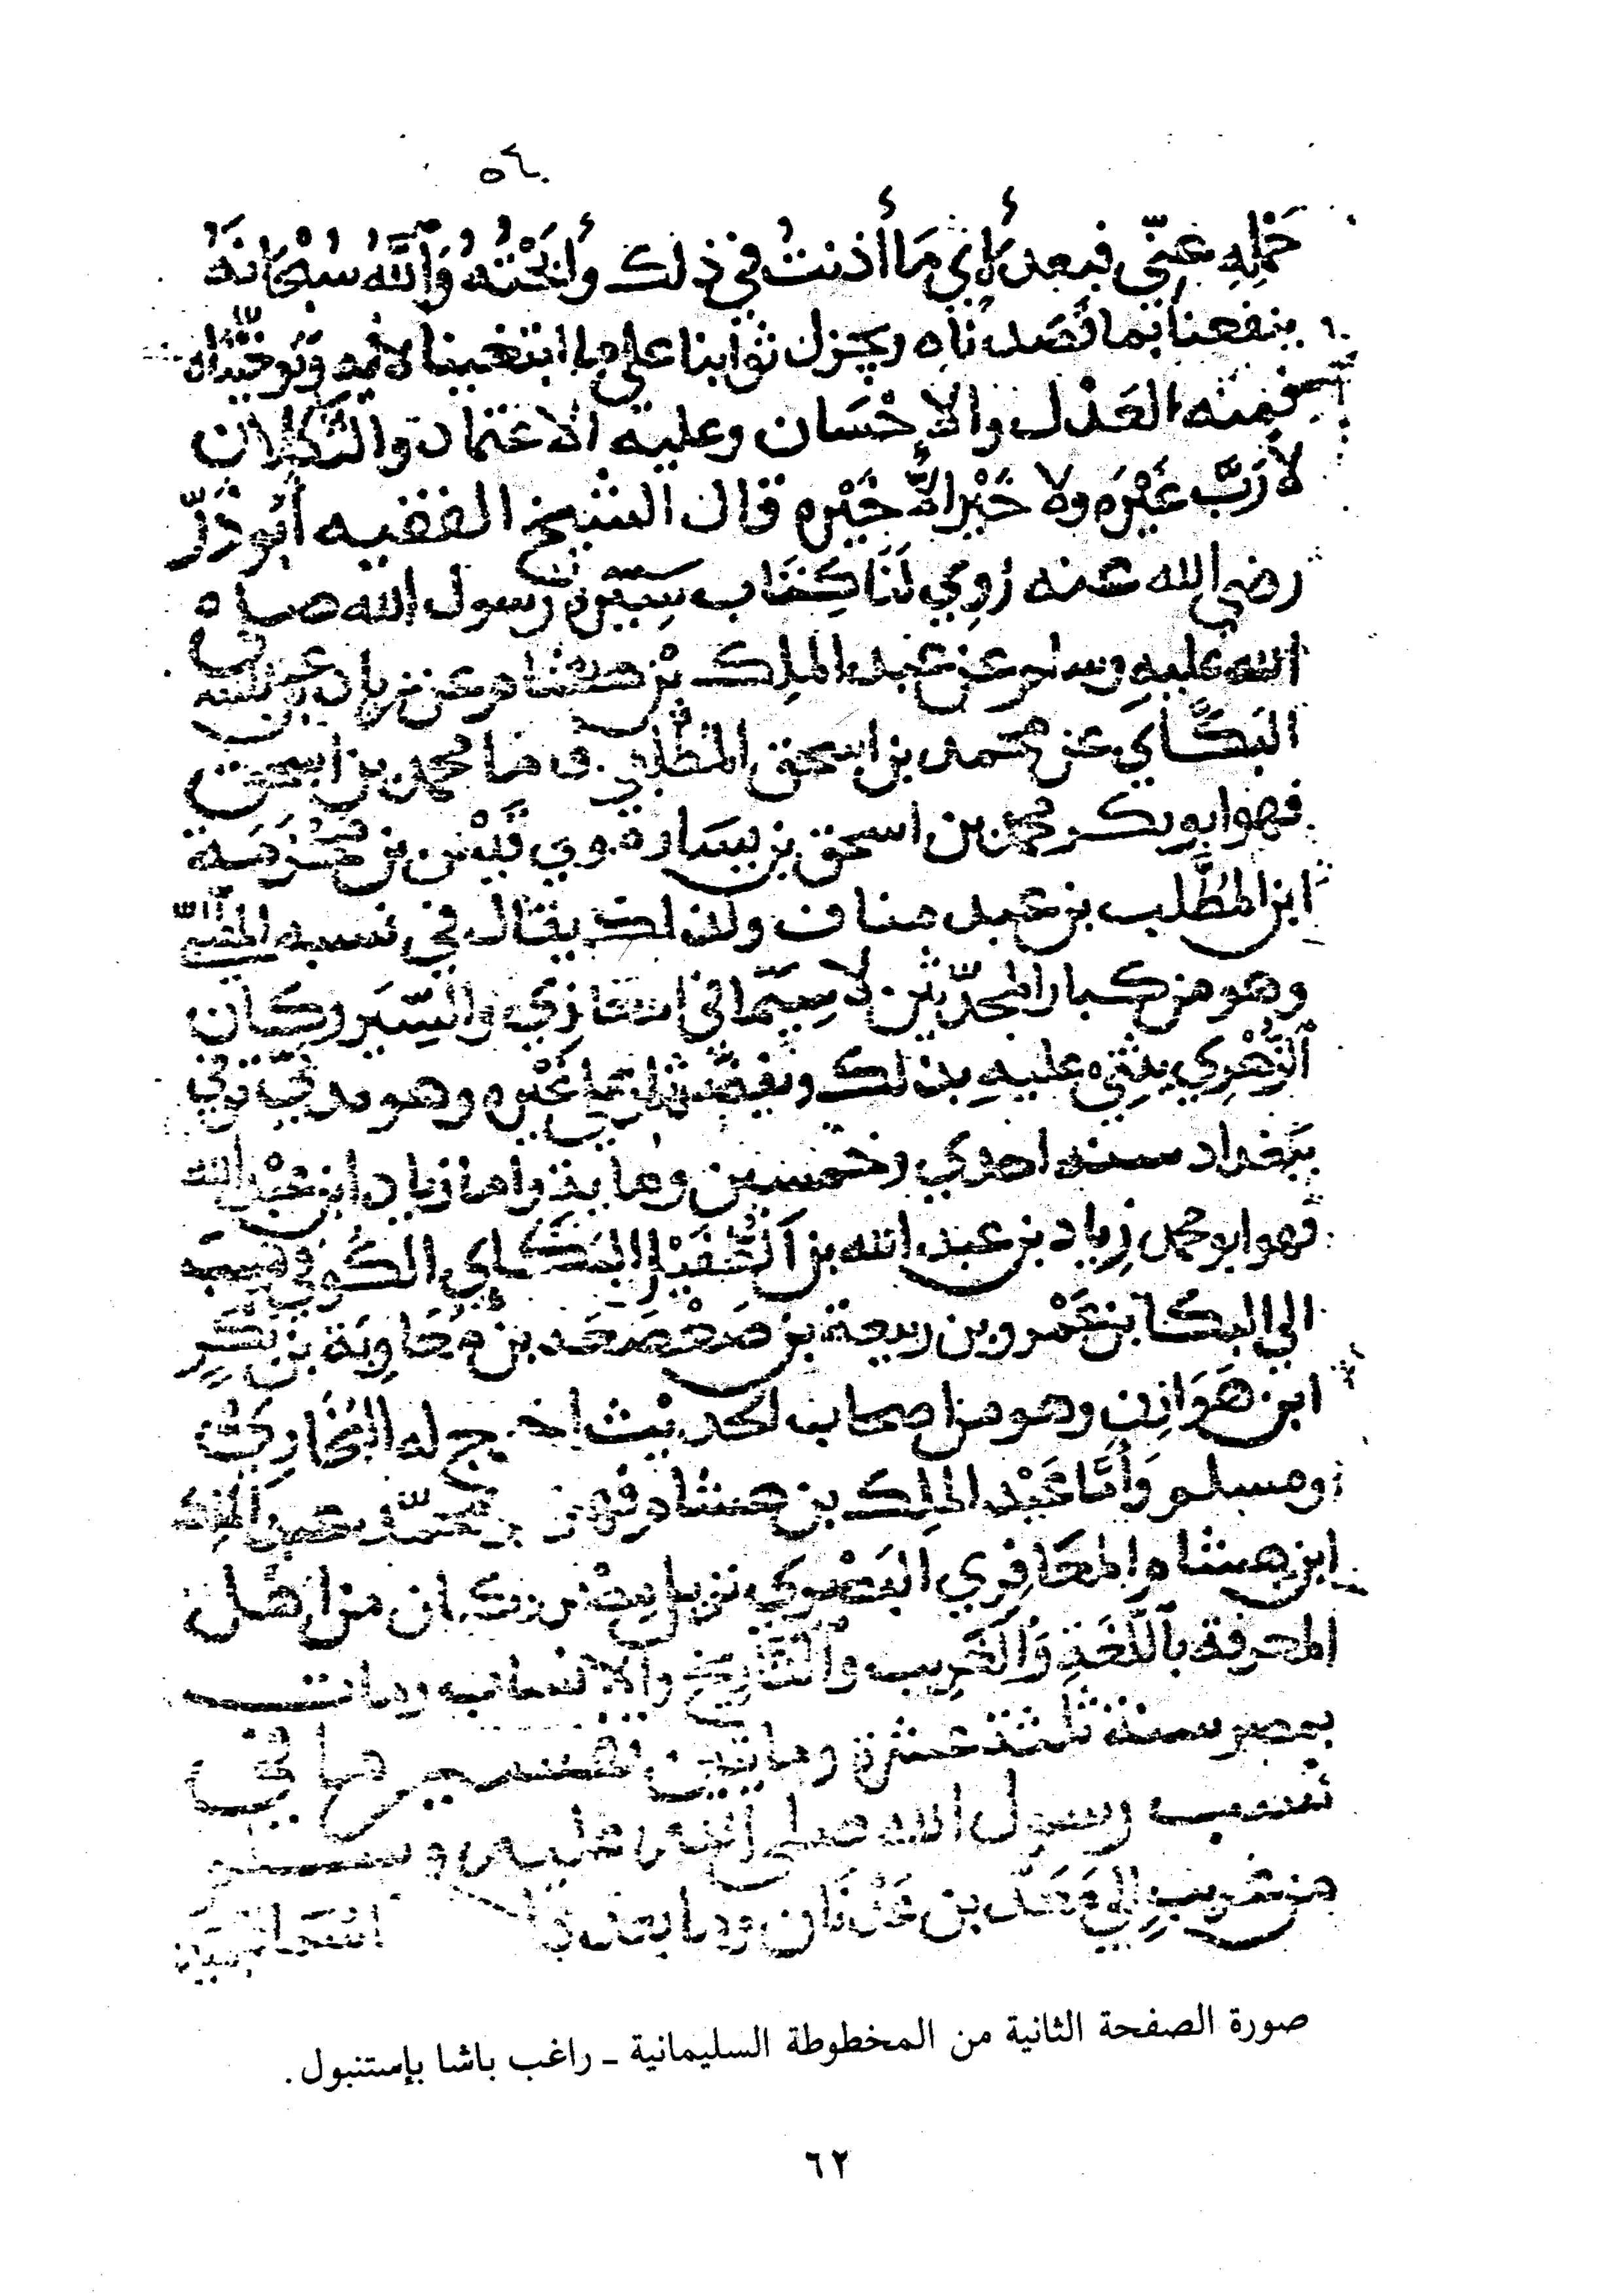 حَمْلِهِ عَنِّي فبعد لَأْيٍ مَا أُذنتُ في ذلك وأَبَحْتُهُ وَٱللَّهُ سُبْحَانَهُ
ينفعنا بما قَصَدْنَاه ويجزل ثوابنا على ما ابتغيناه وتَوخَّيْنَاه
فمنه العَدْل والإِحْسَان وعليه الاعتماد والتُّكلان
لا رَبَّ غَيْرَه ولا خَيْرَ إلاَّ خَيْره قال الشيخ الفقيه أبُو ذَرّ
رضي الله عنه رُوِي لَنَا كِتَاب سِيَرِة رَسول الله صلى
الله عليهِ وسلم عن عَبد الملِك بْن هشام عن زياد بن عبد الله
البَكَّاي عن محمد بن اسحق المُطَّلِبي فامَا محمد بن اسحق
فهو ابو بكر محمد بن اسحق بن يسار مَولى قَيْس بن مَخْرَمَة
ابن المُطَّلب بن عبد مناف ولذلك يقال في نسبه المطلبي
وهو من كبار المحدّثين لا سِيَّمَا في المغازي والسِّيَر وكان
ٱلزُّهْرِي يثني عليهِ بذلك ويفضّله على غَيْره وهو مدني توفي
ببَغداد سنة احدى وخمسين ومايةٍ واما زياد ابن عَبْد الله
فهو ابو محمد زِياد بن عبد الله بن ٱلطُّفَيْل البَكَّاي الكُوفي نسبه
الى البكا بن عَمْرو بن ربيعة بن صَعْصَعَه بن مُعَاوِيَة بن بَكْرِ
ابن هَوَازِن وهو من اصحاب الحديث اخرج له البُخَاري
ومسلم وَأَمَّا عَبْد المَلِك بن هشام فهو محمّد عبد الملك
ابن هشام المعَافِري البَصْري نزيل مِصْر وكان من اهْل
المعرفة بٱللُّغَةِ وَٱلغَرِيب وٱلتَّاريخ وٱلأنساب ومات
بمصر سنة ثلثة عشرة ومايتين تفسير ما في
نسب رسول الله صلى الله عليه وسلم
من غريبٍ الى مَعَدّ بن عَدْنَان وما بعد ذلك
صورة الصفحة الثانية من المخطوطة السليمانية ـ راغب باشا بإستنبول .
٦٢